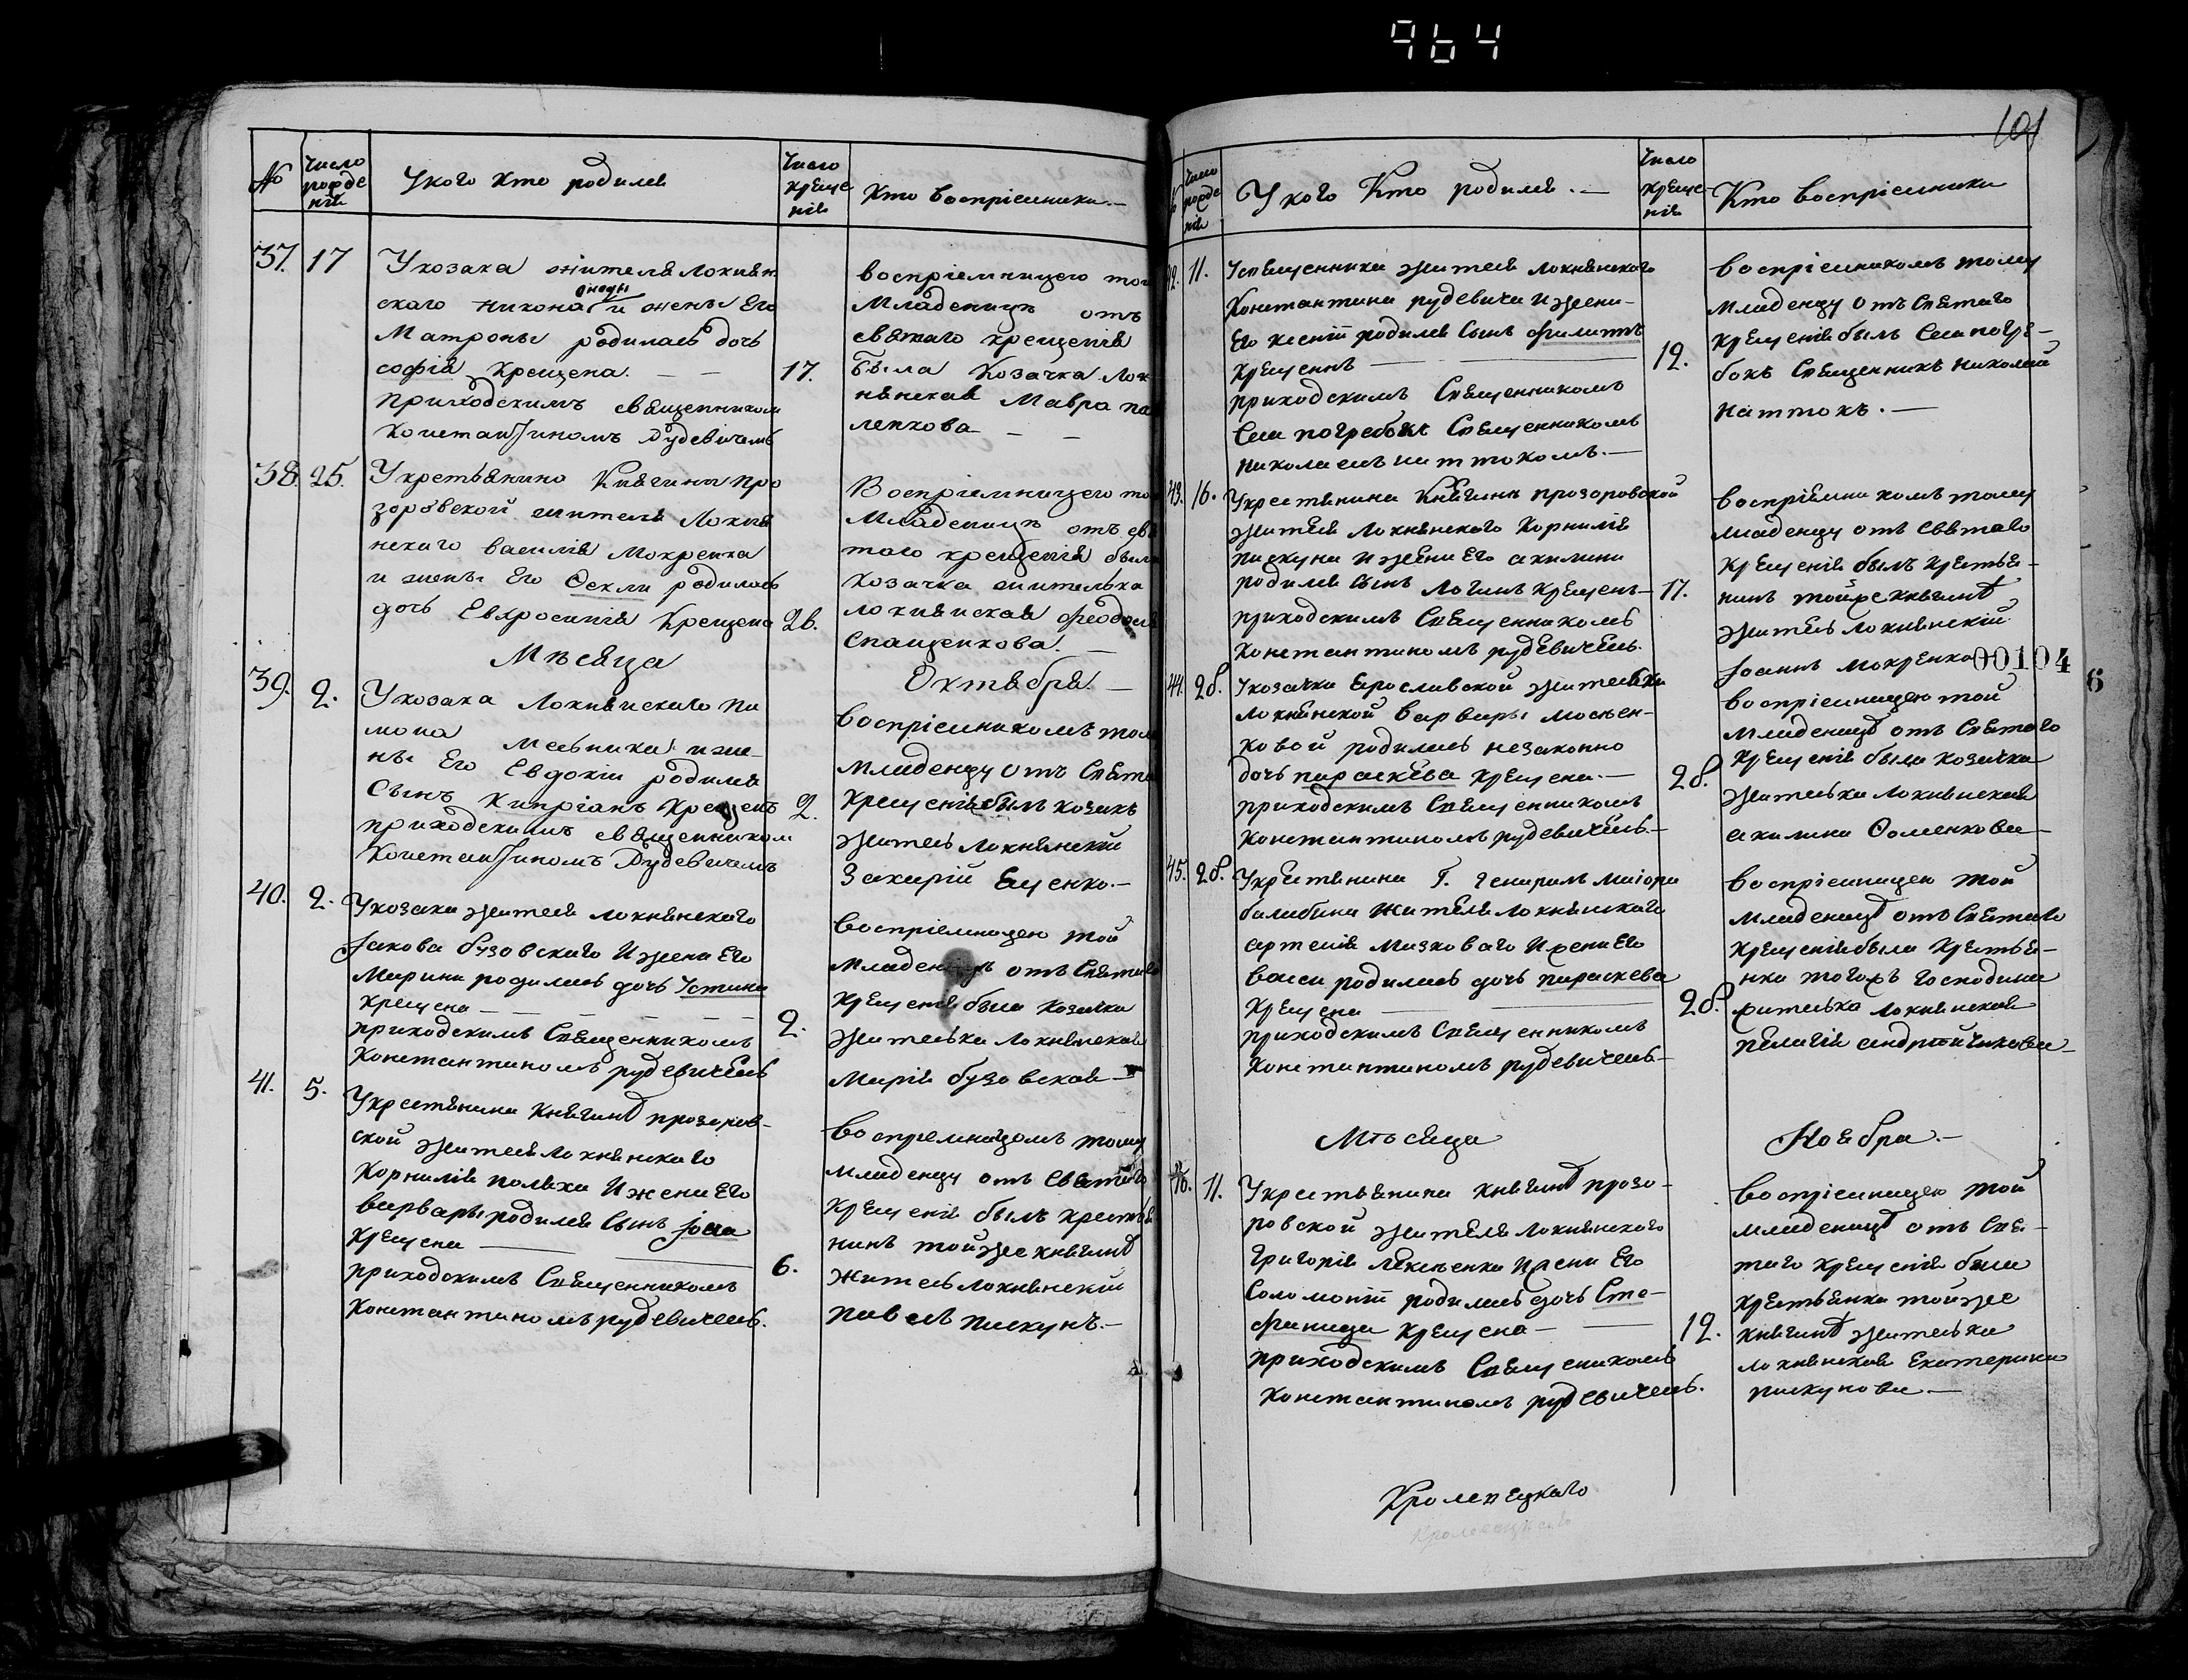 964
101
№
Число рожде нія
У кого кто родился
Число креще нія
Кто воспріемники
37. 17
У козака жителя Локнян
скаго Никона и жены Его
Матроны родилась дочь
софія крещена. — — 17.
приходскимъ священником
Константиномъ Рудевичемъ
воспріемницею той
Младеницѣ отъ
святаго крещенія
была козачка Лок
нянская Мавра
38. 25.
У крестьянино Княгини про
зоровской жителя Локня
нскаго василія Мокренка
и жены Его Феклы родилась
дочь Евхросинія Крещена 26.
Воспріемницею той
Младеницѣ отъ свя
таго крещенія была
козачка жителька
локнянская Феодосія
Спащенкова. —
Мѣсяца Октября. —
39. 2.
У козака Локнянскаго Пи
мона Мельника и же-
ны Его Евдокіи родился
Сынъ Кипріанъ Крещенъ 2.
приходскимъ священником
Константиномъ Рудевичемъ
воспріемникомъ тому
младенцу отъ Свята
крещенія былъ козакъ
житель локнянскій
Захарій Ященко. —
40. 2.
У козака жителя локнянскаго
Іакова бузовскаго и жени Его
Марини родилась дочь Устина
крещена — — — — 2.
приходскимъ Священникомъ
Константиномъ рудевичемъ
воспріемницею той
младеницѣ отъ Святаго
крещенія была козачка
жителька локнянская
Марія бузовская —
41. 5.
У крестянина княгинѣ прозоров-
ской жителя локнянскаго
Корнилія поляха и жени Его
варвары родился Сынъ Іона
крещена — — 6.
приходскимъ Священникомъ
Константиномъ рудевичемъ.
воспремницомъ тому
младенцу отъ Святаго
крещенія былъ крестья
нинъ тойже княгинѣ
житель локнянскій
павелъ пискунъ. —
№
Число рожде нія
У кого Кто родился. —
Число креще нія
Кто воспріемники
42. 11.
У священника жителя локнянскаго
Константина рудевича и жени-
Его ксеніи родился Сынъ филиппъ
крещеннъ — — 12.
приходскимъ Священникомъ
Семи погребокъ Священникомъ
николаемъ
воспріемникомъ тому
младенцу отъ Святаго
крещенія былъ Семи погре-
бокъ Священникъ николай
. —
43. 16.
У крестянина Княгинѣ прозоровской
жителя локнянскаго Корнилія
пискуна и жени Его акилини
родился Сынъ логинъ крещенъ — 17.
приходскимъ Священникомъ
Константиномъ рудевичемъ.
воспріемникомъ тому
младенцу отъ Святаго
крещенія былъ крестья-
нинъ тойже княгинѣ
житель локнянскій
Іоаннъ мокренко
00104
6
44. 28.
У козачки Ярославской жительки
локнянской варвары мосѣен-
ковой родилась незаконно
дочь параскева крещена. — 28.
приходскимъ Священникомъ
Константиномъ рудевичемъ. —
воспріемницею той
младеницѣ отъ Святаго
крещенія была козачка
жителька локнянская
акилина Фоменкова —
45. 28.
У крестянина Г. генералъ маіора
балабина жителя локнянскаго
артемія мазковаго и жени Его
васси родилась дочь параскева
крещена — — 28.
приходскимъ Священникомъ
Константиномъ рудевичемъ —
воспріемницею той
младеницѣ отъ Святаго
крещенія была крестья-
нка тогожъ господина
жителька локнянская
пелагія андрейчикова —
Мѣсяца Ноября. —
46. 11.
У крестьянина княгинѣ прозо-
ровской жителя локнянскаго
григорія и жени Его
Соломоніи родилась дочь Сте-
фанида крещена — — 12.
приходскимъ Священикомъ
Константиномъ рудевичемъ.
воспріемницею той
младеницѣ отъ Свя-
таго крещенія была
крестьянка тойже
княгинѣ жителька
локнянская Екатерина
пискунова —
Кролевецкаго